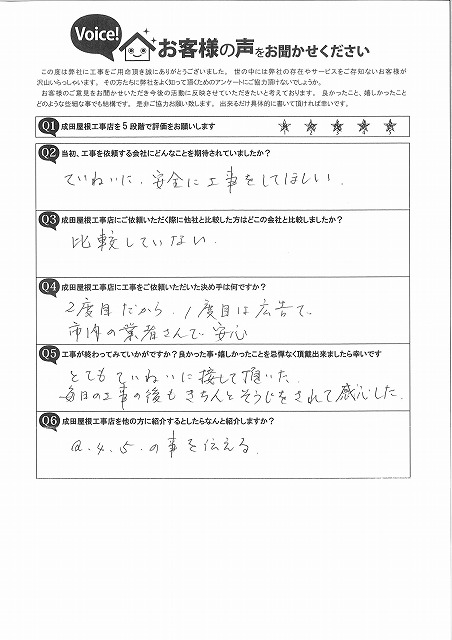 Voice!
お客様の声をお聞かせください
この度は弊社に工事をご用命頂き誠にありがとうございました。 世の中には弊社の存在やサービスをご存知ないお客様が
沢山いらっしゃいます。 その方たちに弊社をよく知って頂くためのアンケートにご協力頂けないでしょうか。
お客様のご意見をお聞かせいただき今後の活動に反映させていただきたいと考えております。 良かったこと、嬉しかったこと
どのような些細な事でも結構です。 是非ご協力お願い致します。 出来るだけ具体的に書いて頂ければ幸いです。
Q1 成田屋根工事店を5段階で評価をお願いします
1 2 3 4 5
Q2 当初、工事を依頼する会社にどんなことを期待されていましたか?
ていねいに、安全に工事をしてほしい、
Q3 成田屋根工事店にご依頼いただく際に他社と比較した方はどこの会社と比較しましたか?
比較していない、
Q4 成田屋根工事店に工事をご依頼いただいた決め手は何ですか?
2度目だから、1度目は広告で
市内の業者さんで安心
Q5 工事が終わってみていかがですか?良かった事・嬉しかったことを忌憚なく頂戴出来ましたら幸いです
とてもていねいに接して頂いた、
毎日の工事の後もきちんとそうじをされて感心した、
Q6 成田屋根工事店を他の方に紹介するとしたらなんと紹介しますか?
Q.4.5.の事を伝える、